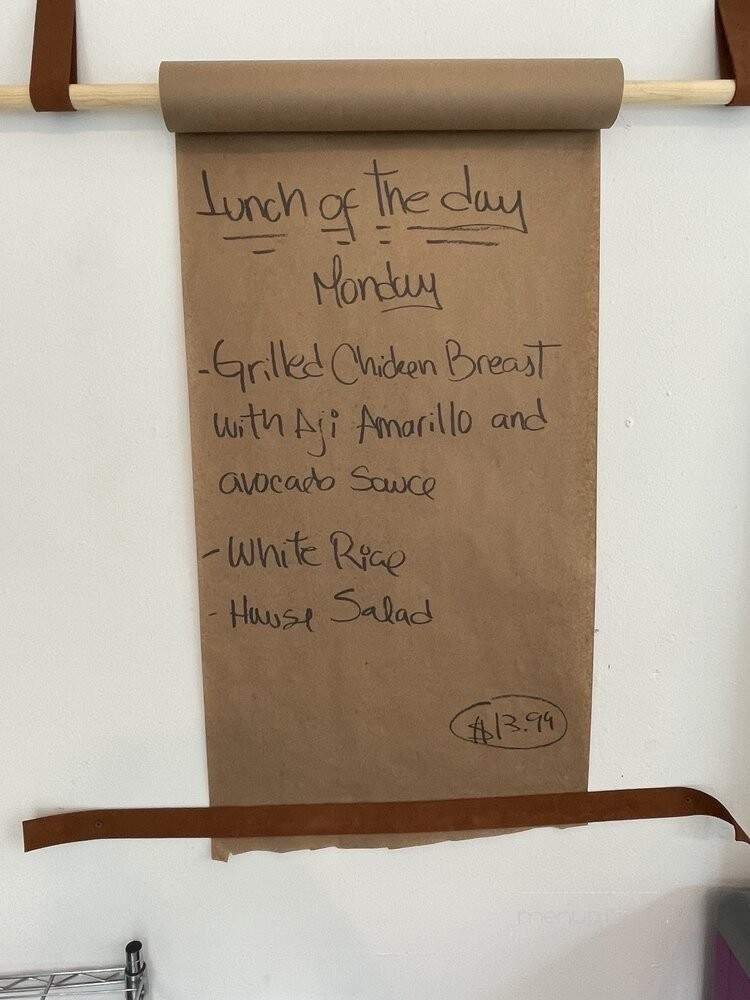 Lunch of the day
Monday
- Grilled Chicken Breast
with Aji Amarillo and
avocado Sauce
- White Rice
- House Salad
$13.99